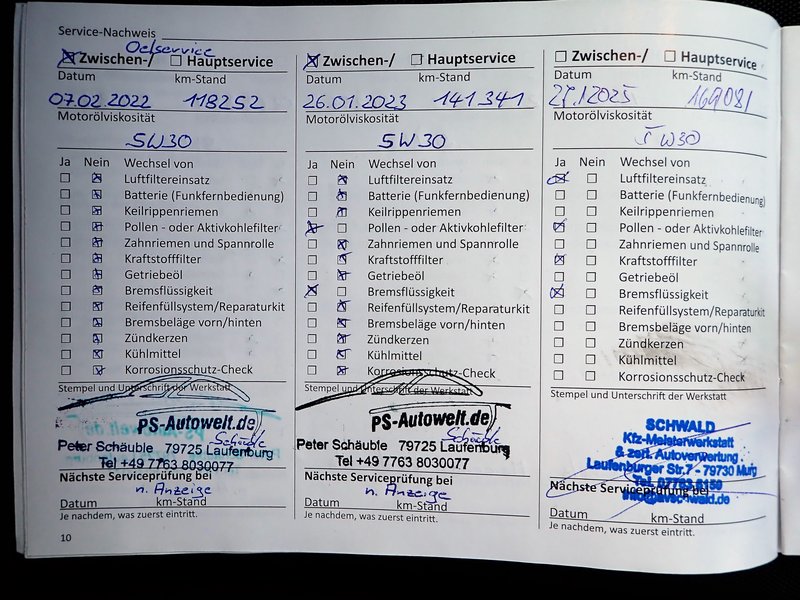 Service-Nachweis
Oelservice
Zwischen-/ Hauptservice
Datum km-Stand
07.02.2022 118252
Motorölviskosität
5W30
Ja Nein Wechsel von
Luftfiltereinsatz
Batterie (Funkfernbedienung)
Keilrippenriemen
Pollen - oder Aktivkohlefilter
Zahnriemen und Spannrolle
Kraftstofffilter
Getriebeöl
Bremsflüssigkeit
Reifenfüllsystem/Reparaturkit
Bremsbeläge vorn/hinten
Zündkerzen
Kühlmittel
Korrosionsschutz-Check
Stempel und Unterschrift der Werkstatt
PS-Autowelt.de
Schäuble
Peter Schäuble 79725 Laufenburg
Tel +49 7763 8030077
Nächste Serviceprüfung bei
n. Anzeige
Datum km-Stand
Je nachdem, was zuerst eintritt.
10
Zwischen-/ Hauptservice
Datum km-Stand
26.01.2023 141341
Motorölviskosität
5W30
Ja Nein Wechsel von
Luftfiltereinsatz
Batterie (Funkfernbedienung)
Keilrippenriemen
Pollen - oder Aktivkohlefilter
Zahnriemen und Spannrolle
Kraftstofffilter
Getriebeöl
Bremsflüssigkeit
Reifenfüllsystem/Reparaturkit
Bremsbeläge vorn/hinten
Zündkerzen
Kühlmittel
Korrosionsschutz-Check
Stempel und Unterschrift der Werkstatt
PS-Autowelt.de
Schäuble
Peter Schäuble 79725 Laufenburg
Tel +49 7763 8030077
Nächste Serviceprüfung bei
n. Anzeige
Datum km-Stand
Je nachdem, was zuerst eintritt.
Zwischen-/ Hauptservice
Datum km-Stand
27.1.2025 169081
Motorölviskosität
5W30
Ja Nein Wechsel von
Luftfiltereinsatz
Batterie (Funkfernbedienung)
Keilrippenriemen
Pollen - oder Aktivkohlefilter
Zahnriemen und Spannrolle
Kraftstofffilter
Getriebeöl
Bremsflüssigkeit
Reifenfüllsystem/Reparaturkit
Bremsbeläge vorn/hinten
Zündkerzen
Kühlmittel
Korrosionsschutz-Check
Stempel und Unterschrift der Werkstatt
SCHWALD
Kfz-Meisterwerkstatt
& zert. Autoverwertung
Laufenburger Str.7 - 79730 Murg
Tel. 07763 6159
Nächste Serviceprüfung bei
info@avschwald.de
Datum km-Stand
Je nachdem, was zuerst eintritt.